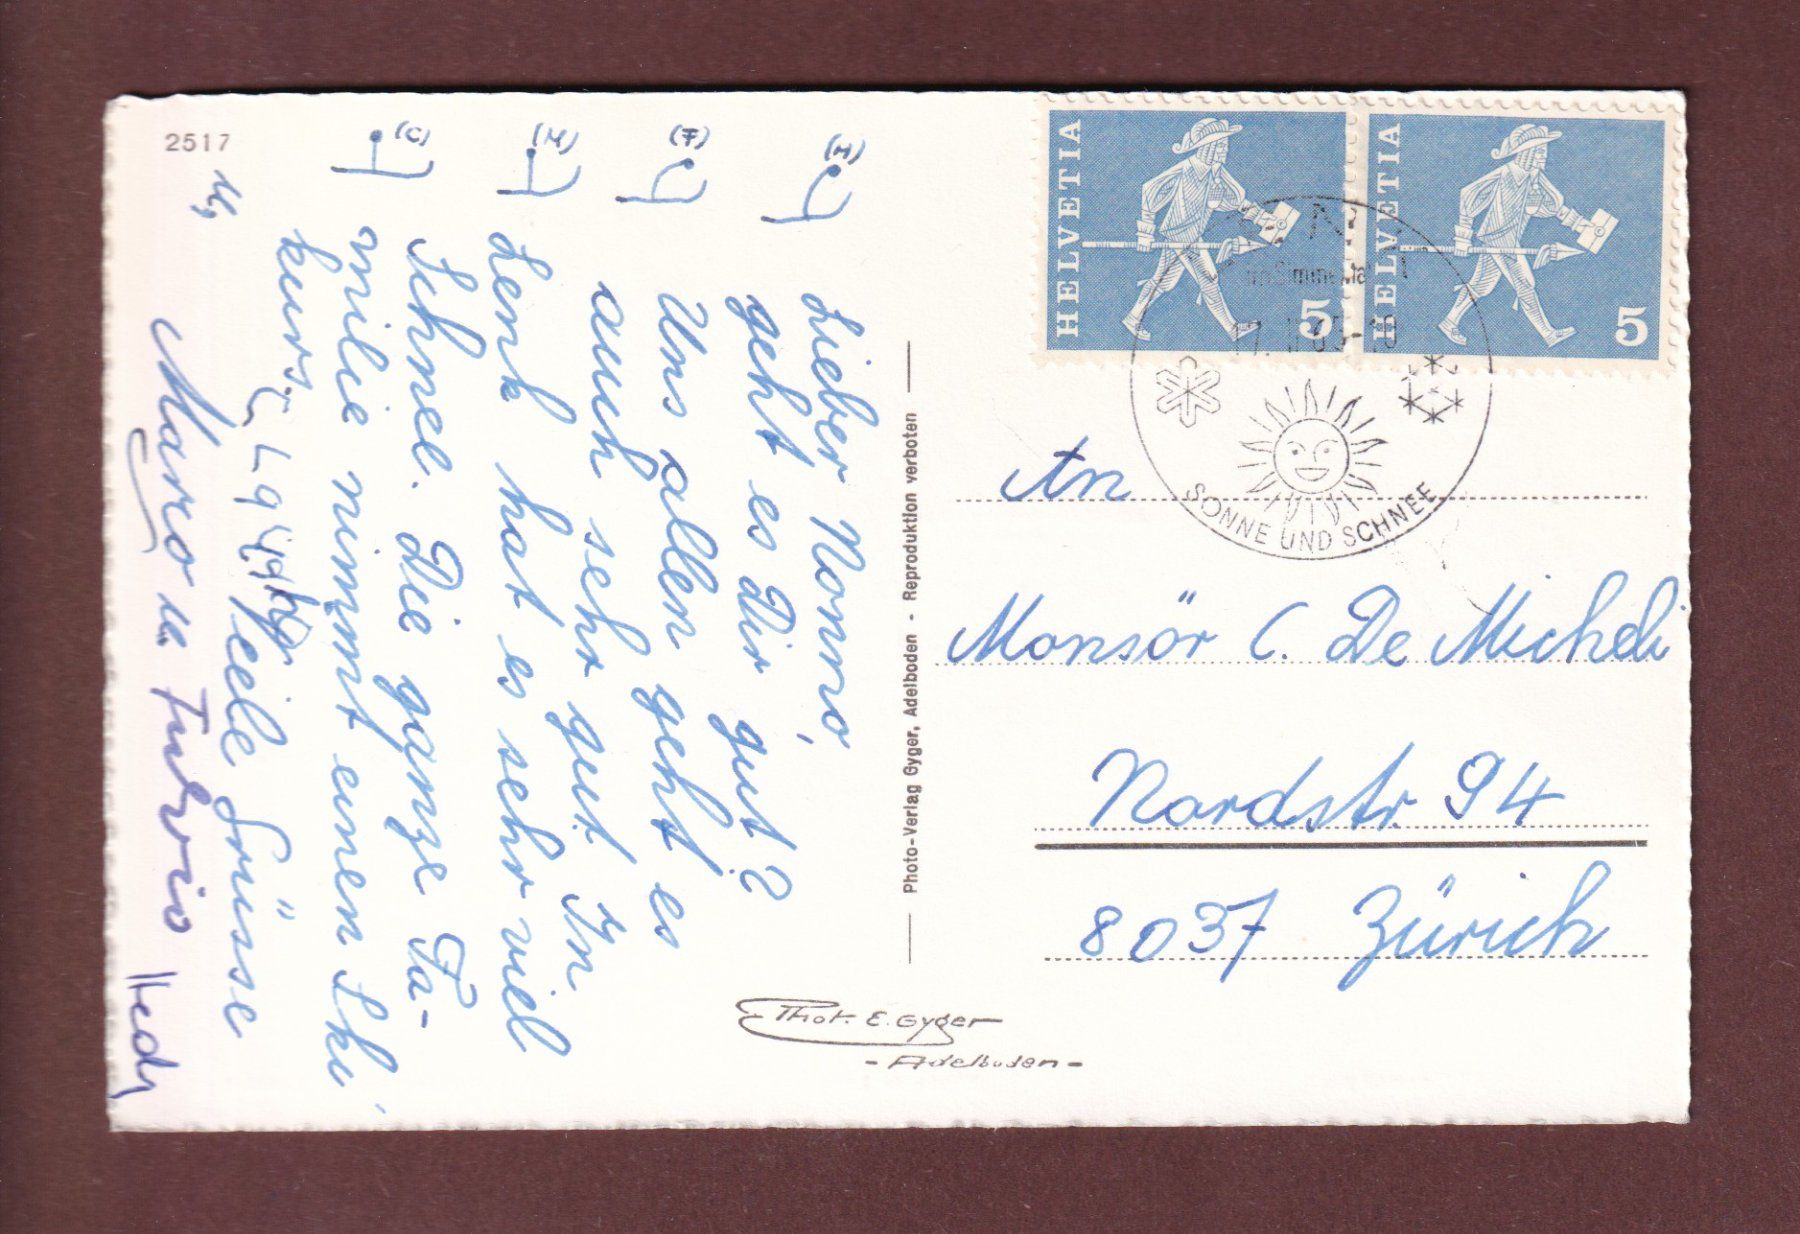 2517
(C)
(M)
(F)
(H)
Lieber Nonno,
geht es Dir gut?
Uns allen geht es
auch sehr gut. In
Lenk hat es sehr viel
Schnee. Die ganze Fa-
milie nimmt einen Ski
kurs.
Viele Grüsse
Marco u. Fulvio Hedy
Photo-Verlag Gyger, Adelboden - Reproduktion verboten
Phot. E. Gyger
- Adelboden -
HELVETIA 5
HELVETIA 5
SONNE UND SCHNEE
An
Monsör C. De Micheli
Nordstr. 94
8037 Zürich